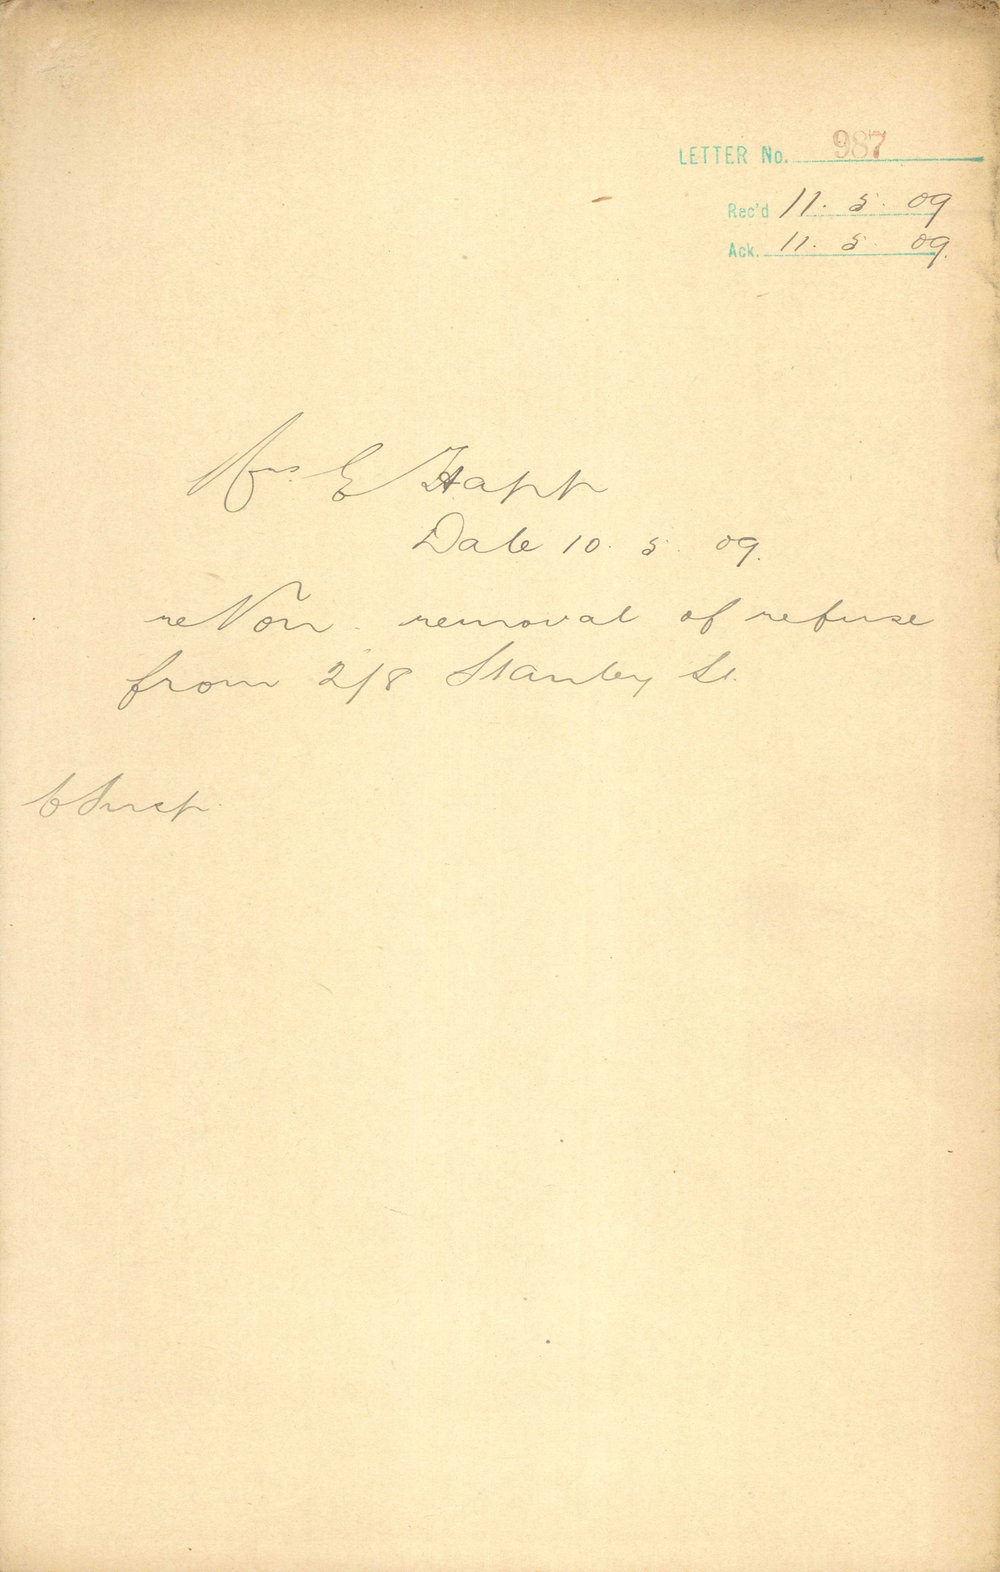 LETTER No. 987
Rec'd 11. 5. 09
Ack. 11. 5. 09.
Mrs. E Happ
Date 10. 5. 09.
re Non removal of refuse
from 218 Stanley St.
C Insp.